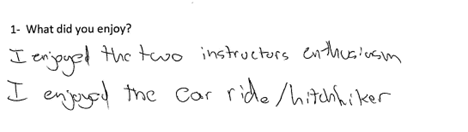 1- What did you enjoy?
I enjoyed the two instructors enthusiasm
I enjoyed the car ride/hitchhiker